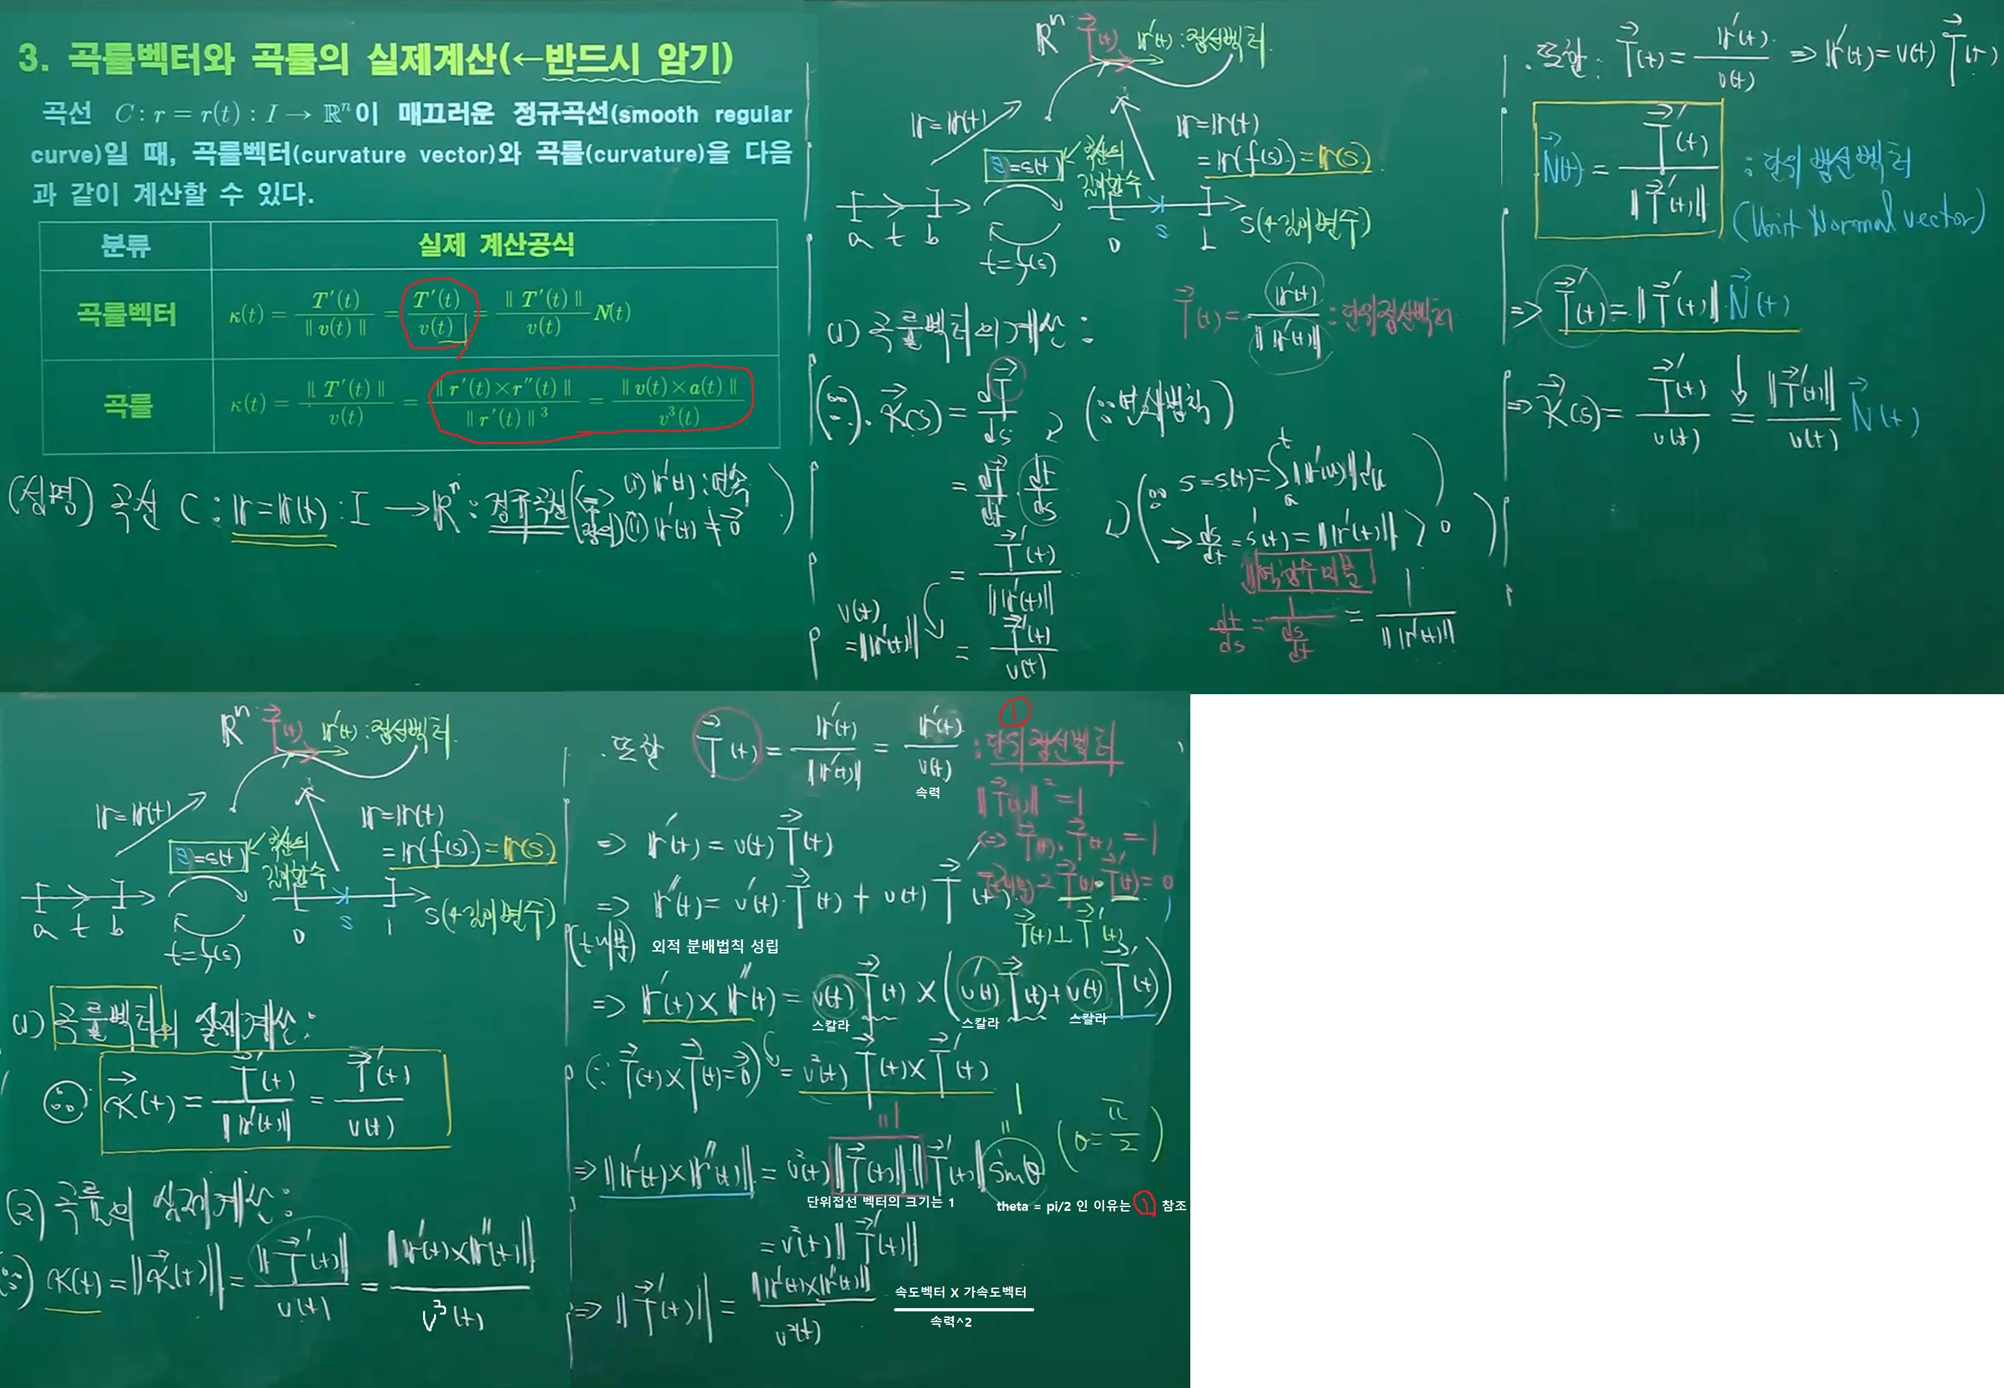 3. 곡률벡터와 곡률의 실제계산(←반드시 암기)
곡선 C : r = r(t) : I → ℝⁿ이 매끄러운 정규곡선(smooth regular
curve)일 때, 곡률벡터(curvature vector)와 곡률(curvature)을 다음
과 같이 계산할 수 있다.
분류 실제 계산공식
곡률벡터 κ(t) = T′(t)/∥v(t)∥ = T′(t)/v(t) = ∥T′(t)∥/v(t) N(t)
곡률 κ(t) = ∥T′(t)∥/v(t) = ∥r′(t)×r″(t)∥/∥r′(t)∥³ = ∥v(t)×a(t)∥/v³(t)
(설명) 곡선 C : r = r(t) : I → ℝⁿ : 정규곡선 (⇔ 정의 (i) r′(t) : 연속 (ii) r′(t) ≠ 0⃗)
ℝⁿ T⃗(t) r′(t) : 접선벡터
r = r(t)
r = r(t)
= r(f(s)) = r(s)
s = s(t) ← 곡선의 길이함수
a t b
0 s L s(←길이변수)
t = f(s)
(1) 곡률벡터의 계산 :
T⃗(t) = r′(t)/∥r′(t)∥ : 단위접선벡터
(∵) · κ⃗(s) = dT⃗/ds (∵ 연쇄법칙)
= dT⃗/dt · dt/ds
(∵ s = s(t) = ∫ₐᵗ ∥r′(u)∥du
→ ds/dt = s′(t) = ∥r′(t)∥ > 0)
= T⃗′(t)/∥r′(t)∥
⇓ 역함수 미분
dt/ds = 1/(ds/dt) = 1/∥r′(t)∥
v(t)
= ∥r′(t)∥
= T⃗′(t)/v(t)
· 또한 : T⃗(t) = r′(t)/v(t) ⇒ r′(t) = v(t) T⃗(t)
N⃗(t) = T⃗′(t)/∥T⃗′(t)∥ : 단위법선벡터
(Unit Normal vector)
⇒ T⃗′(t) = ∥T⃗′(t)∥ N⃗(t)
⇒ κ⃗(s) = T⃗′(t)/v(t) = ∥T⃗′(t)∥/v(t) N⃗(t)
ℝⁿ T⃗(t) r′(t) : 접선벡터
r = r(t)
r = r(t)
= r(f(s)) = r(s)
s = s(t) ← 곡선의 길이함수
a t b
0 s L s(←길이변수)
t = f(s)
(1) 곡률벡터의 실제계산 :
(∵) κ⃗(t) = T⃗′(t)/∥r′(t)∥ = T⃗′(t)/v(t)
(2) 곡률의 실제계산 :
(∵) κ(t) = ∥κ⃗(t)∥ = ∥T⃗′(t)∥/v(t) = ∥r′(t)×r″(t)∥/v³(t)
①
· 또한 T⃗(t) = r′(t)/∥r′(t)∥ = r′(t)/v(t) : 단위접선벡터
속력
∥T⃗(t)∥² = 1
⇔ T⃗(t)·T⃗(t) = 1
2T⃗(t)·T⃗′(t) = 0
T⃗(t) ⊥ T⃗′(t)
⇒ r′(t) = v(t) T⃗(t)
⇒ r″(t) = v′(t)·T⃗(t) + v(t) T⃗′(t)
(t미분) 외적 분배법칙 성립
⇒ r′(t) × r″(t) = v(t) T⃗(t) × (v′(t) T⃗(t) + v(t) T⃗′(t))
스칼라 스칼라 스칼라
(∵ T⃗(t)×T⃗(t)=0⃗) = v²(t) T⃗(t) × T⃗′(t)
⇒ ∥r′(t)×r″(t)∥ = v²(t) ∥T⃗(t)∥ ∥T⃗′(t)∥ sinθ (θ = π/2)
=1 =1
단위접선 벡터의 크기는 1
theta = pi/2 인 이유는 ① 참조
= v²(t) ∥T⃗′(t)∥
⇒ ∥T⃗′(t)∥ = ∥r′(t)×r″(t)∥/v²(t)
속도벡터 X 가속도벡터
속력^2